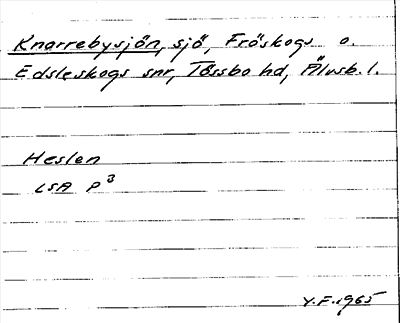 Knarrebysjön, sjö, Fröskogs o.
Edsleskogs snr, Tössbo hd, Älvsb. l.
Heslen
LSA P³
Y.F. 1965